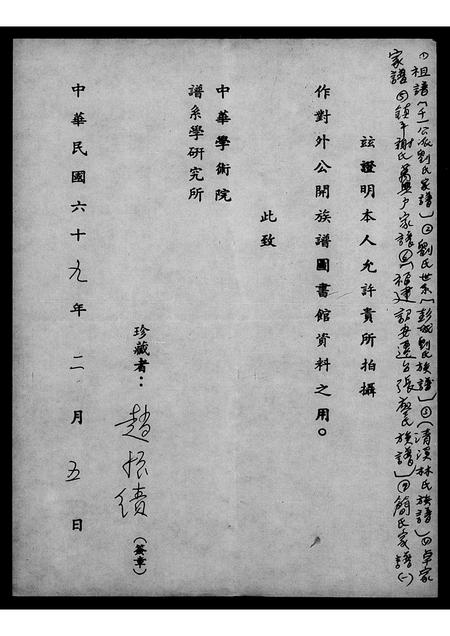 ①祖譜(千一公派劉氏家譜)②劉氏世系(彭城劉氏族譜)③(清溪林氏族譜)④卓家
家譜⑤鎮平謝氏 戶家譜⑥(福建詔安遷台張廖氏族譜)⑦簡氏家譜(一)
茲證明本人允許貴所拍攝
作對外公開族譜圖書館資料之用。
此致
中華學術院
譜系學研究所
珍藏者：趙振績(簽章)
中華民國六十九年二月五日